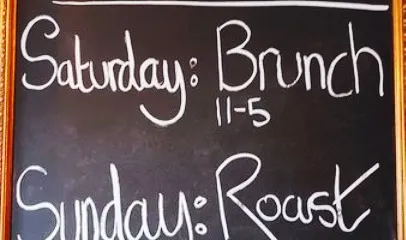 Saturday: Brunch
11-5
Sunday: Roast